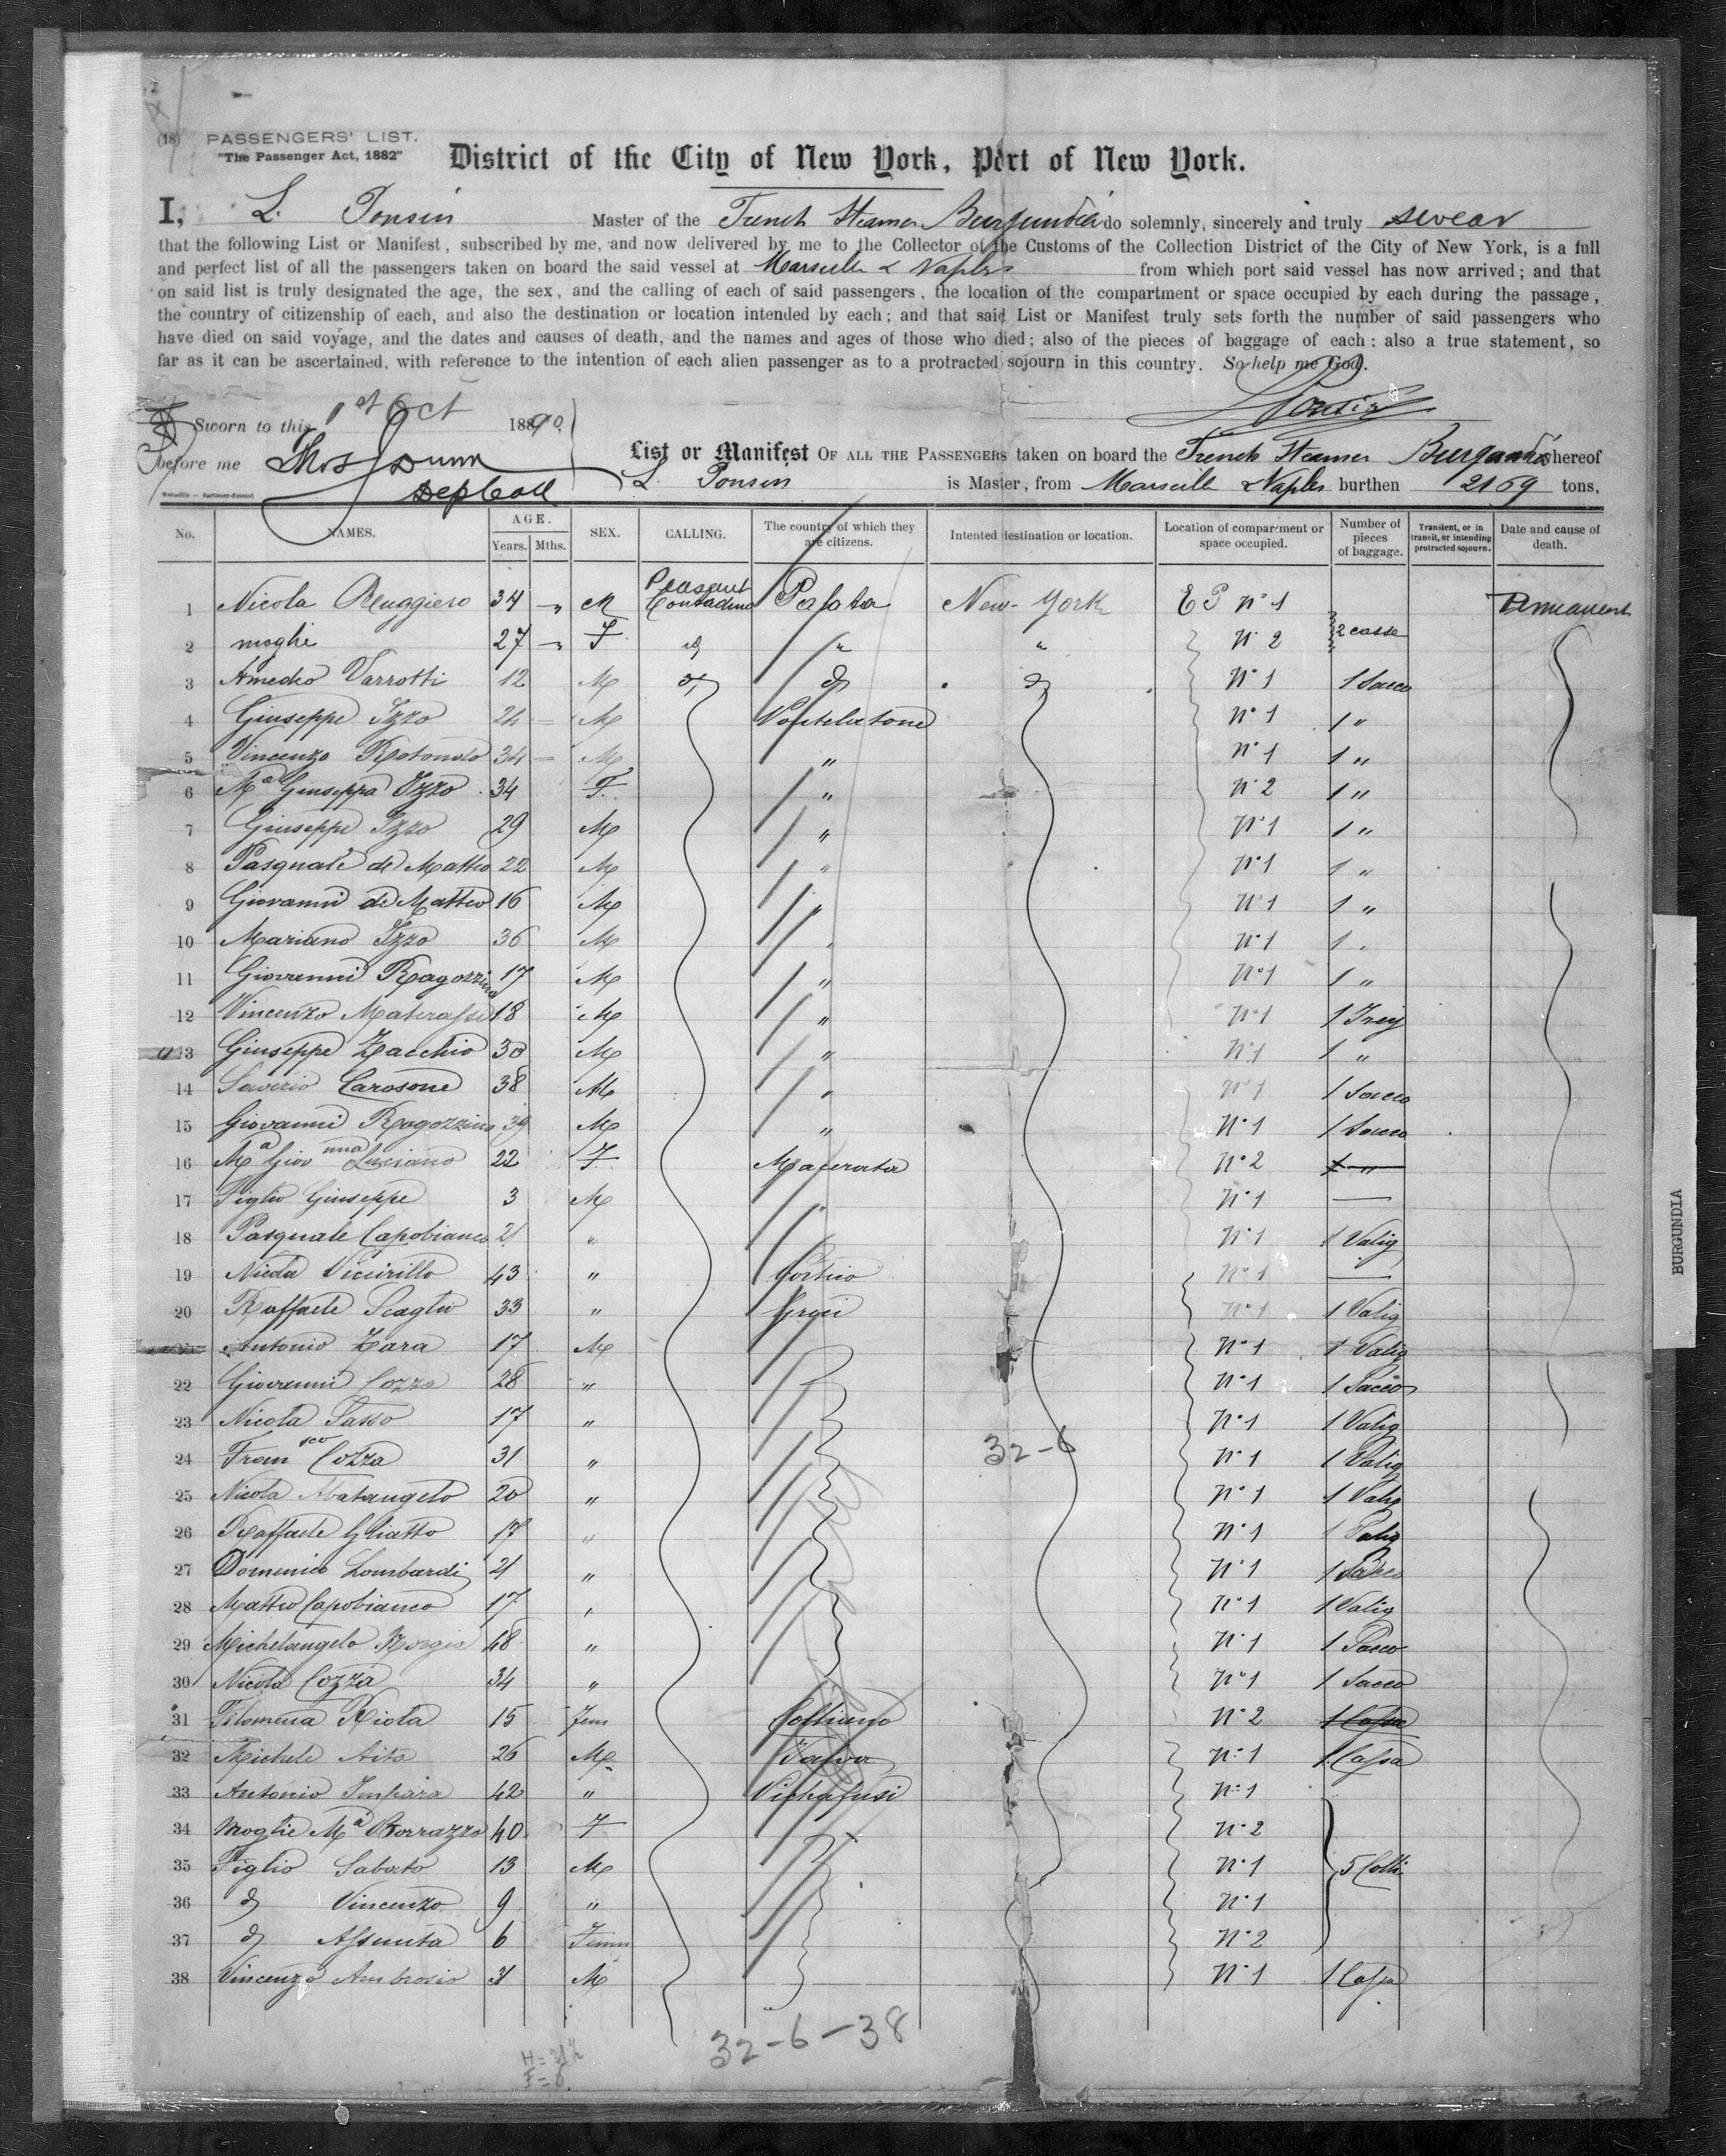 (18) PASSENGERS' LIST.
"The Passenger Act, 1882"
District of the City of New York, Port of New York.
I, L. Ponsin Master of the French Steamer Burgundia do solemnly, sincerely and truly swear
that the following List or Manifest, subscribed by me, and now delivered by me to the Collector of the Customs of the Collection District of the City of New York, is a full
and perfect list of all the passengers taken on board the said vessel at Marseille & Naples from which port said vessel has now arrived; and that
on said list is truly designated the age, the sex, and the calling of each of said passengers, the location of the compartment or space occupied by each during the passage,
the country of citizenship of each, and also the destination or location intended by each; and that said List or Manifest truly sets forth the number of said passengers who
have died on said voyage, and the dates and causes of death, and the names and ages of those who died; also of the pieces of baggage of each; also a true statement, so
far as it can be ascertained, with reference to the intention of each alien passenger as to a protracted sojourn in this country. So help me God.
LPonsin
Sworn to this 1st Oct 1890
before me Thos Dunn
Dep Coll
List or Manifest OF ALL THE PASSENGERS taken on board the French Steamer Burgundia whereof
L. Ponsin is Master, from Marseille & Naples burthen 2169 tons,
No. NAMES. AGE. Years. Mths. SEX. CALLING. The country of which they are citizens. Intented destination or location. Location of compartment or space occupied. Number of pieces of baggage. Transient, or in transit, or intending protracted sojourn. Date and cause of death.
1 Nicola Ruggiero 34 " M Peasant Contadino New-York E P n° 1 Permanent
2 moglie 27 " F id " " N° 2 2 casse
3 Amedeo Varrotti 12 M d d d N° 1 1 Sacco
4 Giuseppe Izzo 24 M Pontelatone N° 1 1 "
5 Vincenzo Rotondo 34 M " N° 1 1 "
6 Ma Giuseppa Izzo 34 F " N° 2 1 "
7 Giuseppe Izzo 29 M " N° 1 1 "
8 Pasquale de Matteo 22 M " N° 1 1 "
9 Giovanni de Matteo 16 M " N° 1 1 "
10 Mariano Izzo 36 M " N° 1 1 "
11 Giovanni Ragozzino 17 M " N° 1 1 "
12 Vincenzo Materasse 18 M " N° 1 1
13 Giuseppe Zacchio 30 M " N° 1 1 "
14 Saverio Carosone 38 M " N° 1 1 Sacco
15 Giovanni Ragozzino 39 M " N° 1 1 Sacco
16 Ma Giovanna Luciano 22 F Macerata N° 2 1 "
17 Figlio Giuseppe 3 M " N° 1
18 Pasquale Capobianco 21 " N° 1 1 Valig
19 Nicola 43 " N° 1
20 Raffaele Scaglio 33 " Greci N° 1 1 Valig
21 Antonio Zara 17 M N° 1 1 Valig
22 Giovanni Cozza 28 " N° 1 1 Sacco
23 Nicola Sasso 17 " N° 1 1 Valig
24 Francsco Cozza 31 " N° 1 1 Valig
32-6
25 Nicola Abatangelo 20 " N° 1 1 Valig
26 Raffaele 17 " N° 1 1 Valig
27 Domenico Lombardi 21 " N° 1 1 Sacco
28 Matteo Capobianco 17 " N° 1 1 Valig
29 Michelangelo 48 " N° 1 1 Sacco
30 Nicola Cozza 34 " N° 1 1 Sacco
31 Filomena Riola 15 Fem N° 2 1 Cassa
32 Michele Aita 26 M N° 1 1 Cassa
33 Antonio Impara 42 " N° 1
34 Moglie Ma 40 F N° 2
35 Figlio Sabato 13 M N° 1 5 Colli
36 d Vincenzo 9 " N° 1
37 d Assunta 6 Femm N° 2
38 Vincenzo Ambrosio 31 M N° 1 1 Cassa
32-6-38
BURGUNDIA